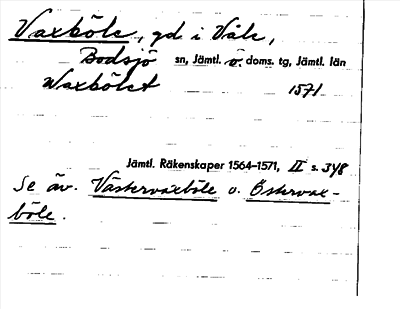 Vaxböle, gd i Våle,
Bodsjö sn, Jämtl. ö. doms. tg, Jämtl. län
Waxbölet 1571
Jämtl. Räkenskaper 1564-1571, II s. 348
Se äv. Västervaxböle o. Östervax-
böle.